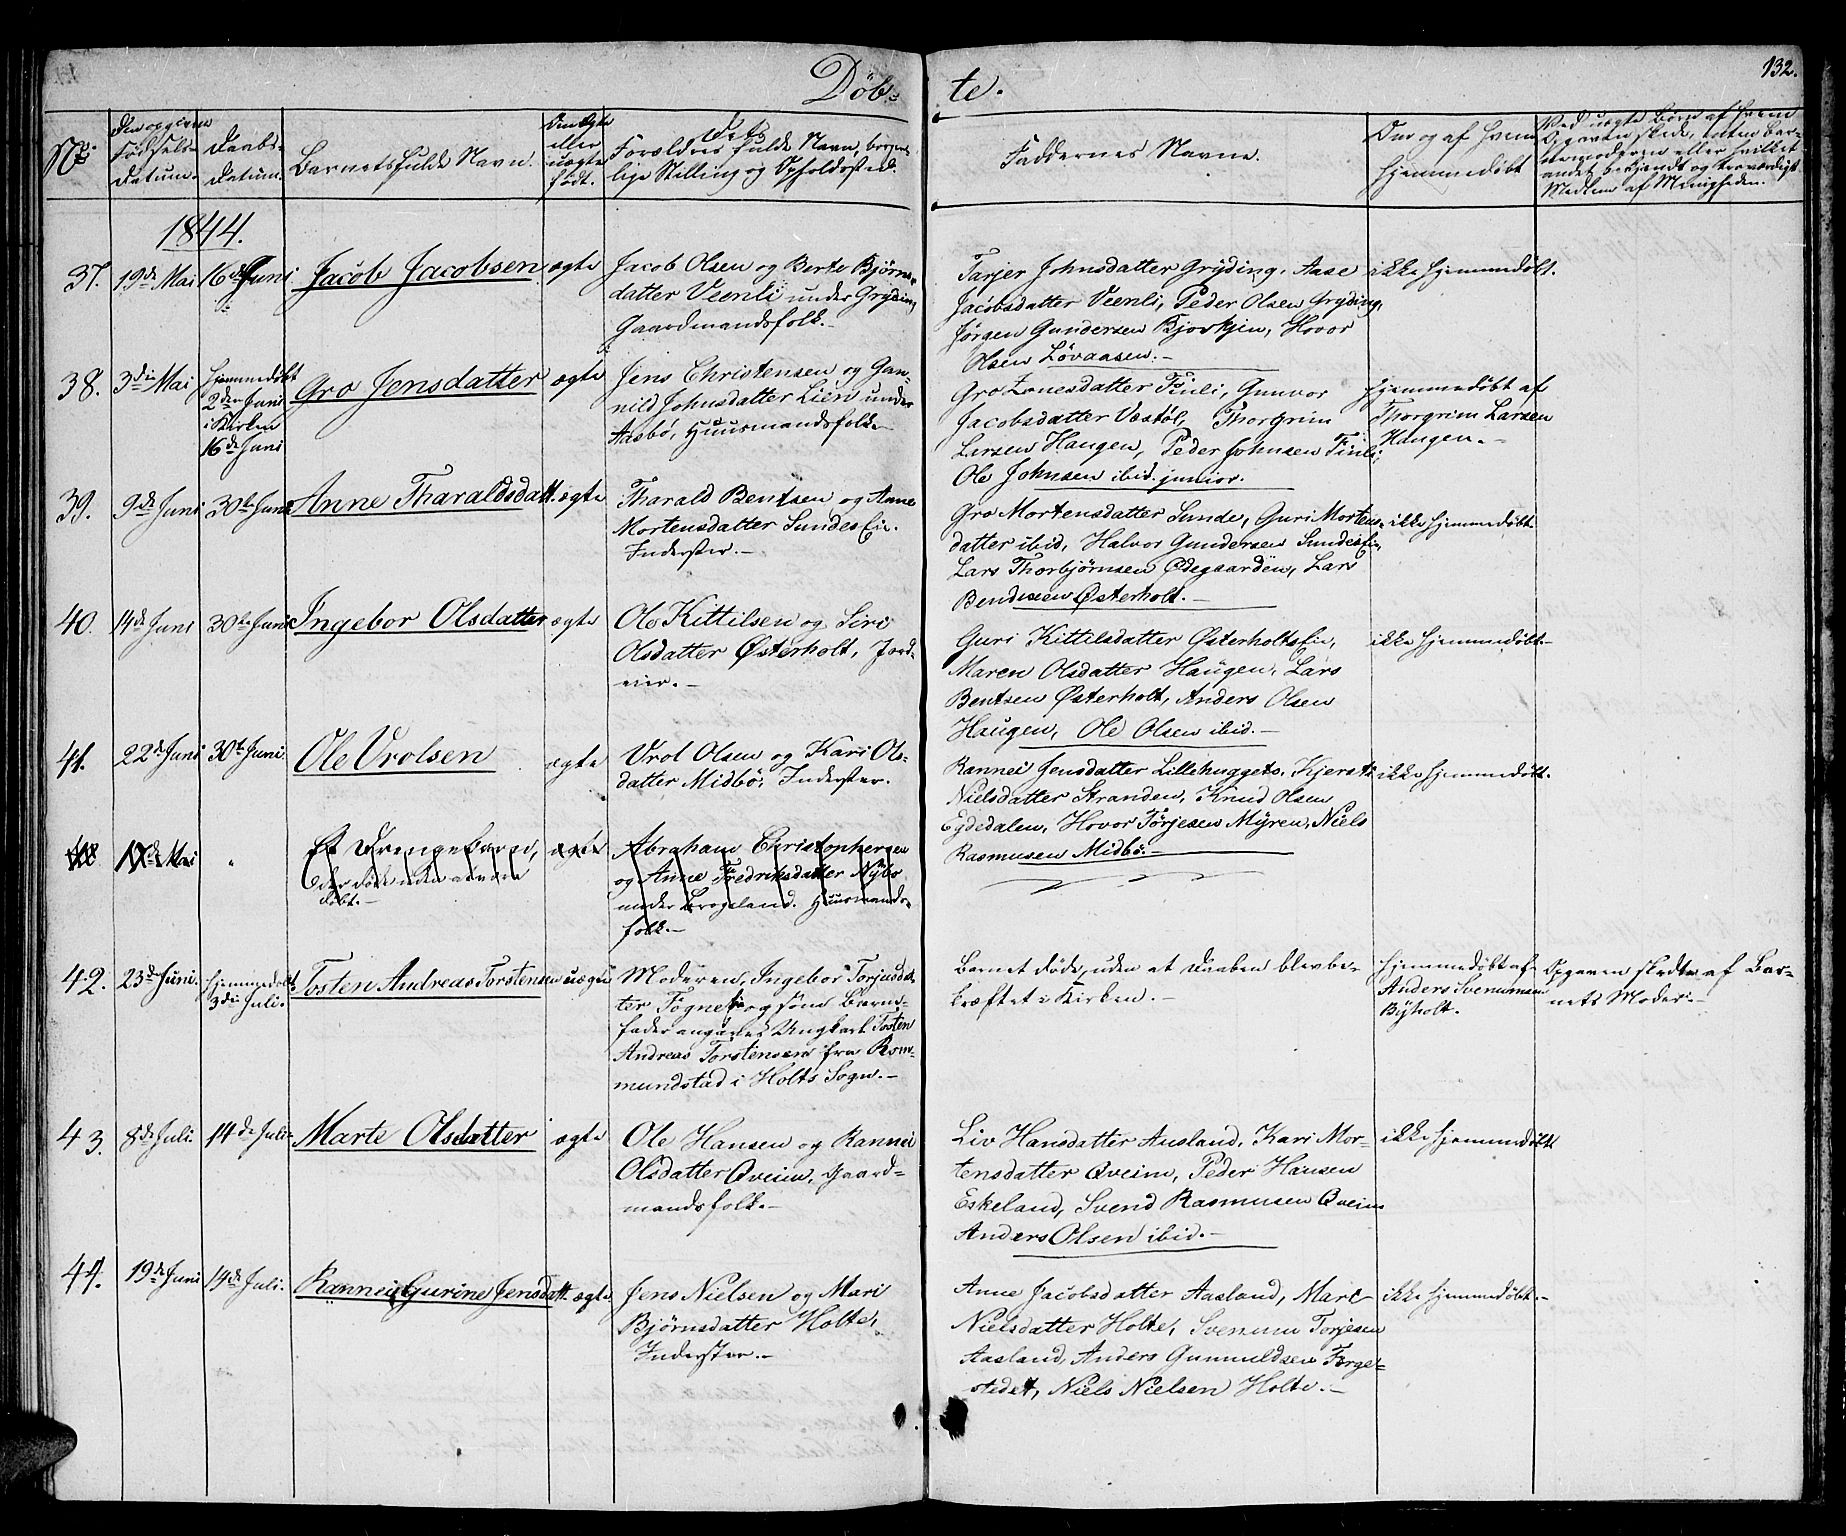 Döb-
te.
132.
No
Den opgivne
Födsels-
datum.
Daabs-
datum.
Barnets fulde Navn.
Om ægte
eller
uægte
født.
dets
Forældres fulde Navn, borger-
lige Stilling og Opholdssted.
Faddernes Navne.
Om og af hvem
hjemmedøbt
Ved uægte Børn af hvem
Opgaven skede, enten Bar-
nemoderen eller hvilket
andet bekjendt og troværdigt
Medlem af Menigheden.
1844.
37.
19de Mai
16de Juni
Jacob Jacobsen
ægte
Jacob Olsen og Berte Bjørns-
datter Veenli under Gryding,
Gaardmandsfolk.-
Tarjer Johnsdatter Gryding, Aase
Jacobsdatter Veenli, Peder Olsen Gryding,
Jørgen Gundersen Bjorkjin, Hovor
Olsen Løvaasen.-
ikke hjemmedøbt.
38.
3die Mai
hjemmedøbt
2den Juni
i Kirken
16de Juni
Gro Jensdatter
ægte
Jens Christensen og Gun-
nild Johnsdatter Lien under
Aasbø, Huusmandsfolk.
Gro Zonesdatter Finli, Gunvor
Jacobsdatter Vestøl, Thorgrim
Larsen Haugen, Peder Johnsen Finli,
Ole Johnsen ibid. junior.
hjemmedøbt af
Thorgrim Larsen
Haugen.-
39.
9de Juni
30te Juni
Anne Tharaldsdatt.
ægte
Tharald Bentsen og Anne
Mortensdatter Sundes Eie.
Inderster.-
Gro Mortensdatter Sunde, Guri Mortens-
datter ibid, Halvor Gundersen Sundes Eie,
Lars Thorbjørnsen Ødegaarden, Lars
Bendixen Østerholt.-
ikke hjemmedøbt
40.
14de Juni
30te Juni
Ingebor Olsdatter
ægte
Ole Kittilsen og Siri
Olsdatter Østerholt, Jord-
eier.-
Guri Kittilsdatter Østerholts Eie,
Maren Olsdatter Haugen, Lars
Bentsen Østerholt, Anders Olsen
Haugen, Ole Olsen ibid.-
ikke hjemmedøbt.-
41.
22de Juni
30te Juni.
Ole Vrolsen
ægte
Vrol Olsen og Kari Ols-
datter Midbø, Inderster.
Rannei Jensdatter Lillehuggets, Kjersti
Nielsdatter Stranden, Knud Olsen
Egdedalen, Hovor Torjesen Myren, Niels
Rasmusen Midbø.-
ikke hjemmedøbt.
Mai
"
Et Drengebarn,
der døde uden at være
døbt.-
ægte
Abraham Christophersen
og Anne Fredriksdatter Nybo
under Krogeland. Huusmands-
folk.-
42.
23de Juni.
hjemmedøbt
3die Juli.
Tosten Andreas Torstensen
uægte
Moderen, Ingebor Torjusdat-
ter Fogne, og som Barne-
fader angives Ungkarl Tosten
Andreas Torstensen fra Rom-
mundstad i Holts Sogn.-
Barnet døde, uden at Daaben blev be-
kræftet i Kirken.-
hjemmedøbt af
Anders Svenumsen
Byholt.
Opgaven skedte af Bar-
nets Moder.-
43.
8de Juli.
14de Juli-
Marte Olsdatter
ægte
Ole Hansen og Rannei
Olsdatter Qveim, Gaard-
mandsfolk.-
Liv Hansdatter Ausland, Kari Mor-
tensdatter Qveim, Peder Hansen
Eskeland, Svend Rasmusen Qveim
Anders Olsen ibid.-
ikke hjemmedøbt
44.
19de Juni
14de Juli.
Rannei Gurine Jensdatt.
ægte
Jens Nielsen og Mari
Bjørnsdatter Holte,
Inderster.-
Anne Jacobsdatter Aasland, Mari
Nielsdatter Holte, Svenum Torjesen
Aasland, Anders Gunnuldsen Torge-
stedet, Niels Nielsen Holte.-
ikke hjemmedøbt.-